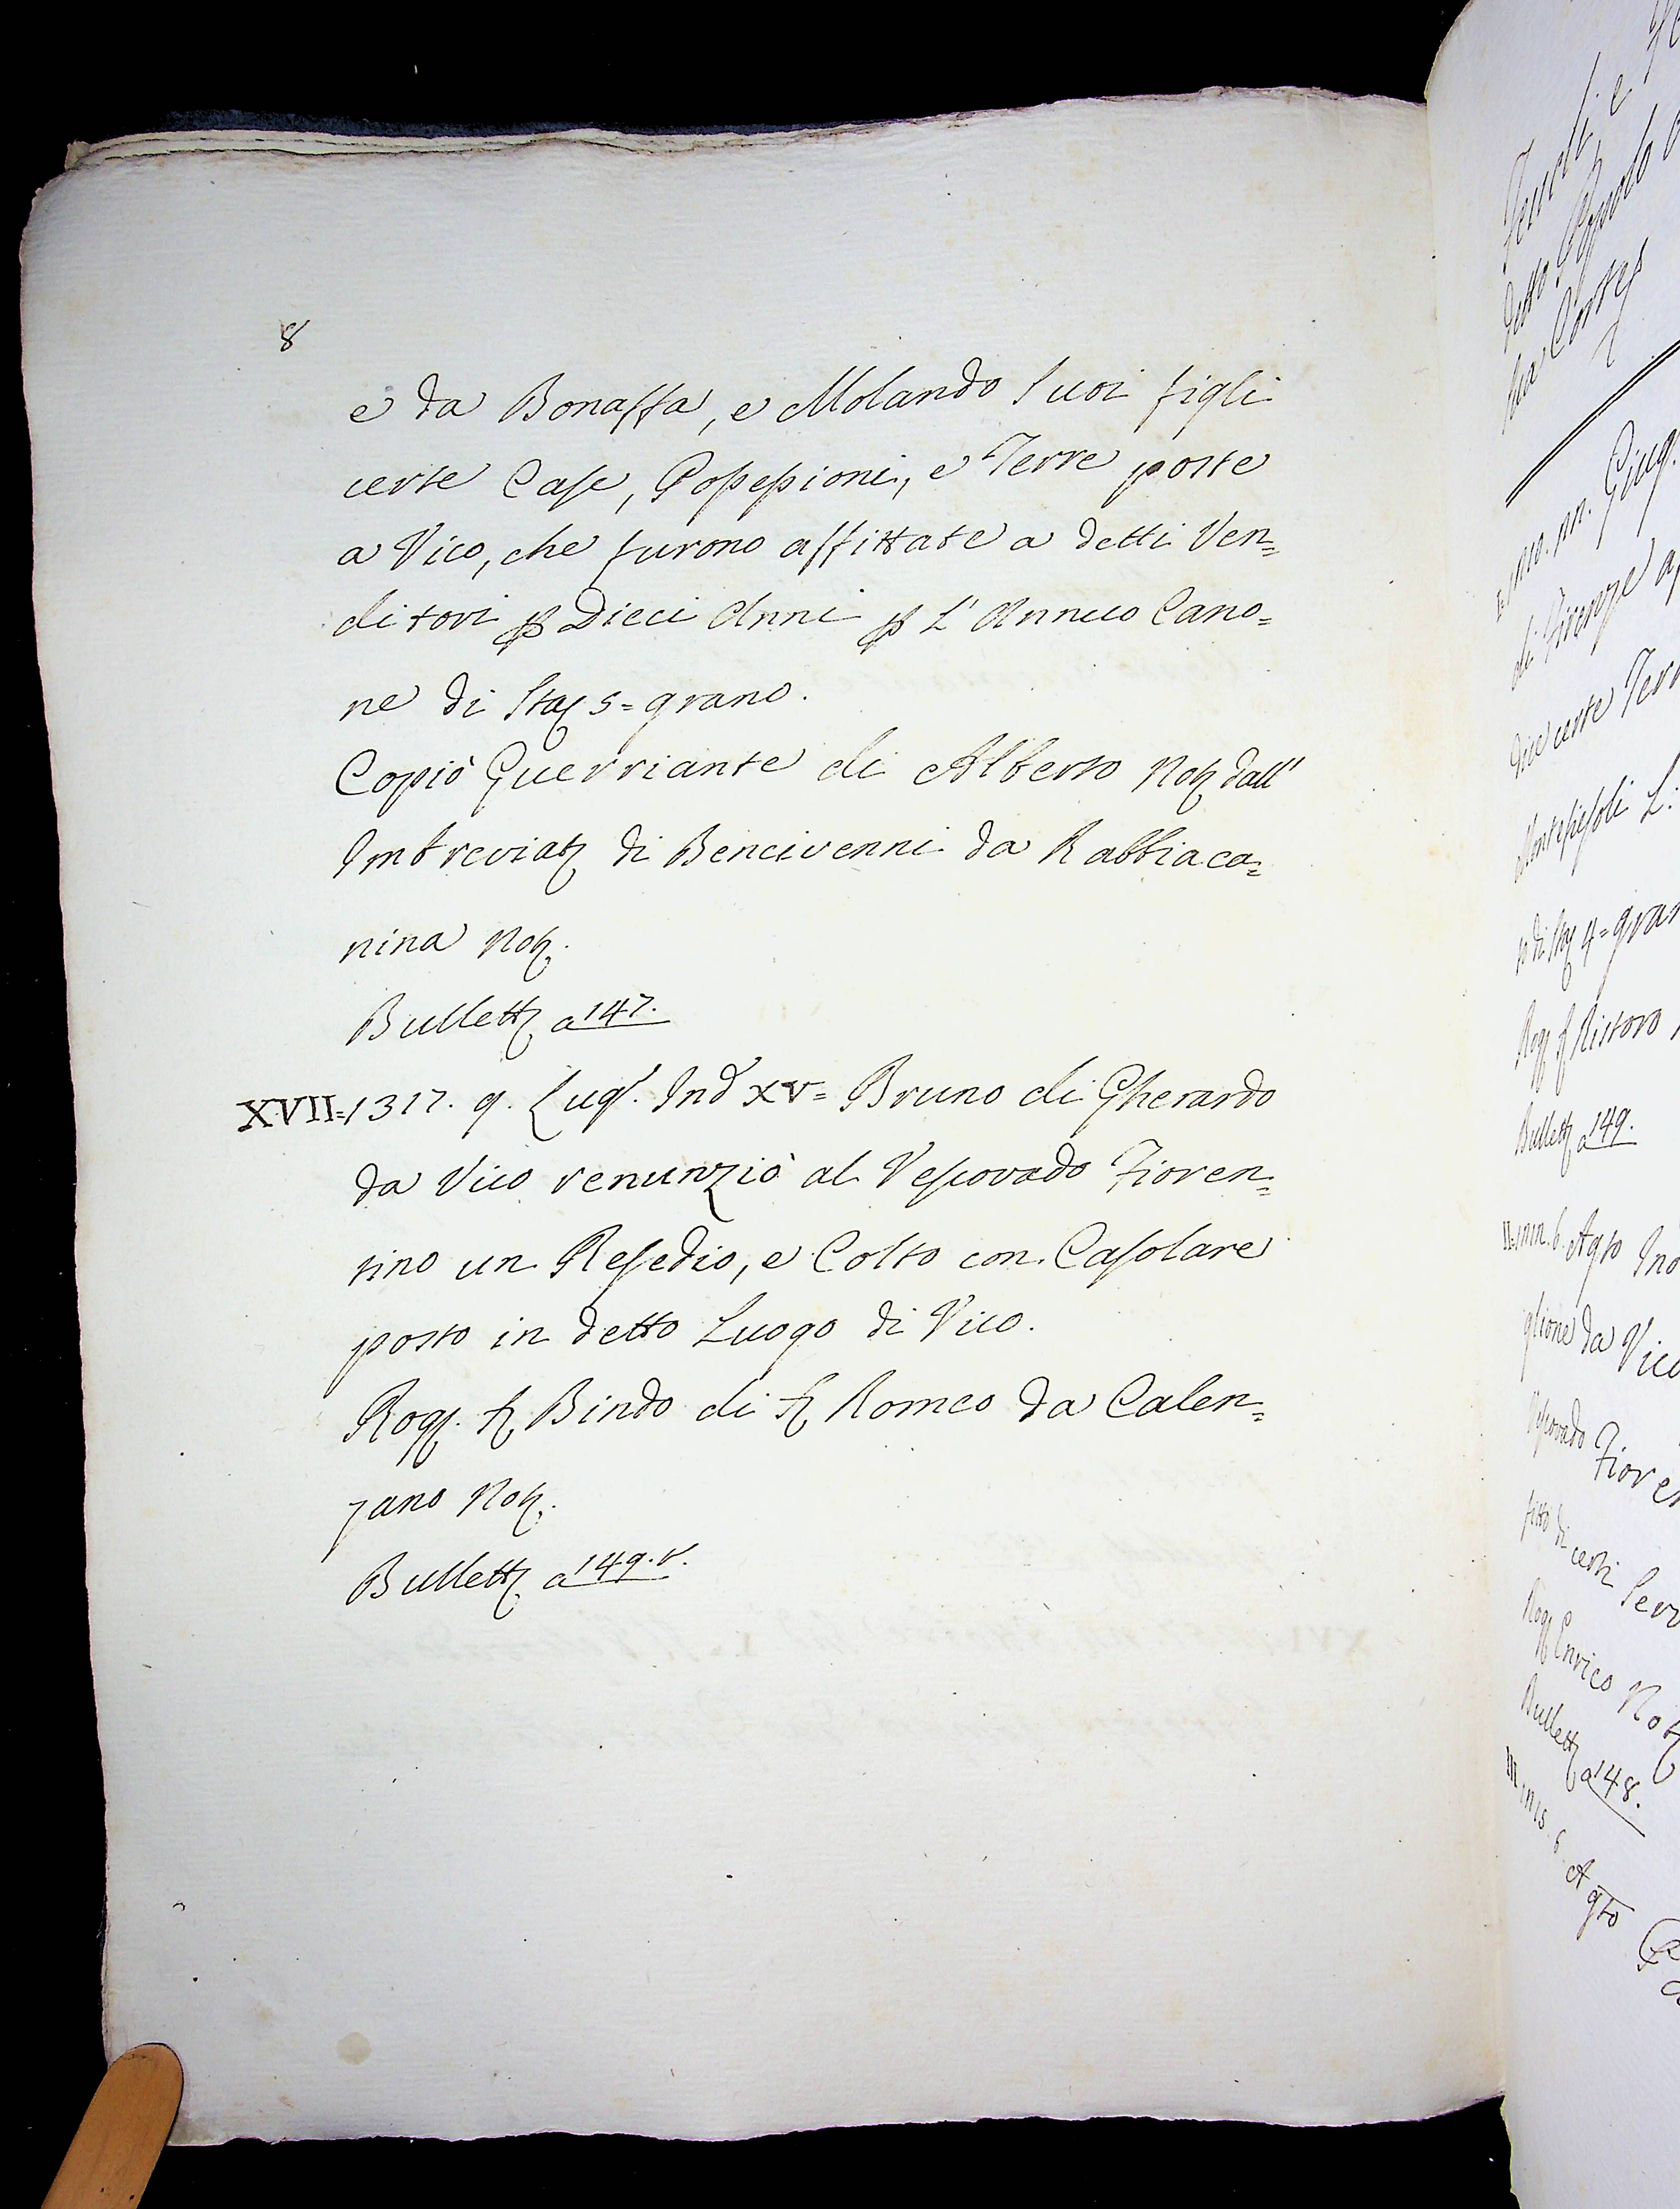 8
e da Bonaffa, e Molando Suoi figli
certe Case, Possessioni, e Terre poste
a Vico, che furono affittate a detti Ven=
ditori p Dieci Anni p L'Annuo Cano=
ne di Sta 5= grano.
Copiò Guerriante di Alberto Not dall'
Imbreviat di Bencivenni da Rabbiaca=
nina Not.
Bullett a 147.
XVII=1317. 9. Lugl. Ind XV= Bruno di Gherardo
da Vico renunziò al Vescovado Fioren=
tino un Resedio, e Colto con Casolare
posto in detto Luogo di Vico.
Rog. S Bindo di S Romeo da Calen=
zano Not.
Bullett a 149. v.
detto
Giug.
di Firenze
certe Terr
Montefiesoli L:
di Sta 4= gran
Rog S Ristoro
Bullett a 149.
II= 6. Agto Ind
glione da Vico
Vescovado Fioren
fitto di certi Serv
Rog Enrico Not
Bullett a 148.
III 6 Agto